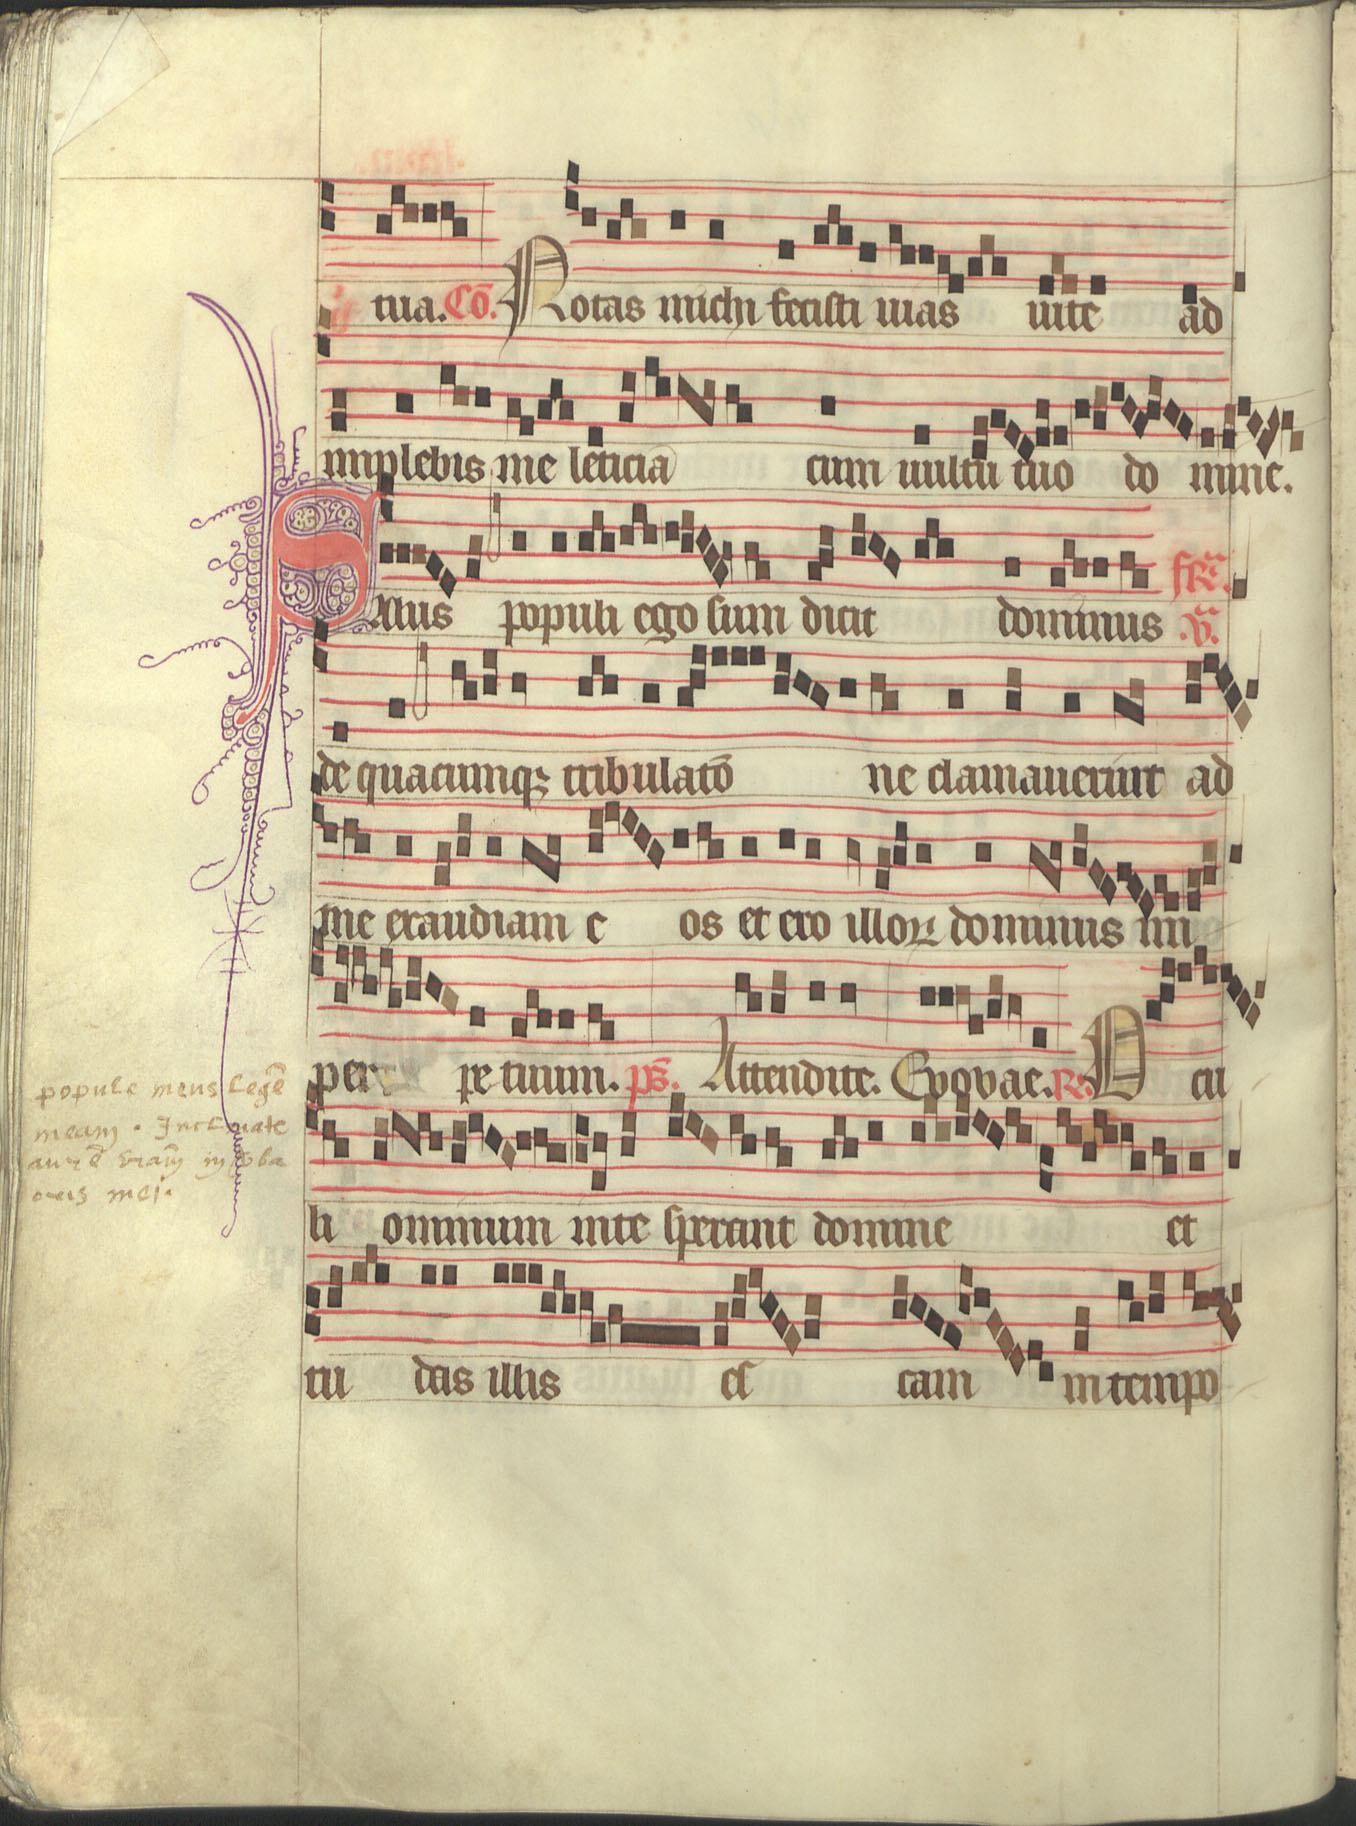 tua. Cõ. Notas michi fecisti uias uite ad
implebis me leticia cum uultu tuo do mine.
Salus populi ego sum dicit dominus fRª. V.
de quacumqꝫ tribulatõ ne clamauerint ad
me exaudiam e os et ero illoꝝ dominus in
per pe tuum. ps. Attendite. Euouae. R. O cu
li omnium inte sperant domine et
tu das illis es cam in tempo
popule meus legẽ
meam. Inclinate
aurẽ vrãm in vba
oris mei.